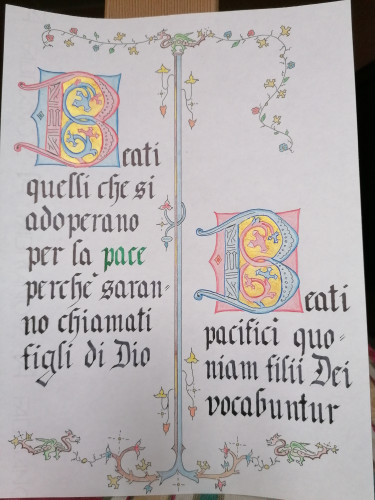 Beati
quelli che si
adoperano
per la pace
perchè saran-
no chiamati
figli di Dio
Beati
pacifici quo-
niam filii Dei
vocabuntur